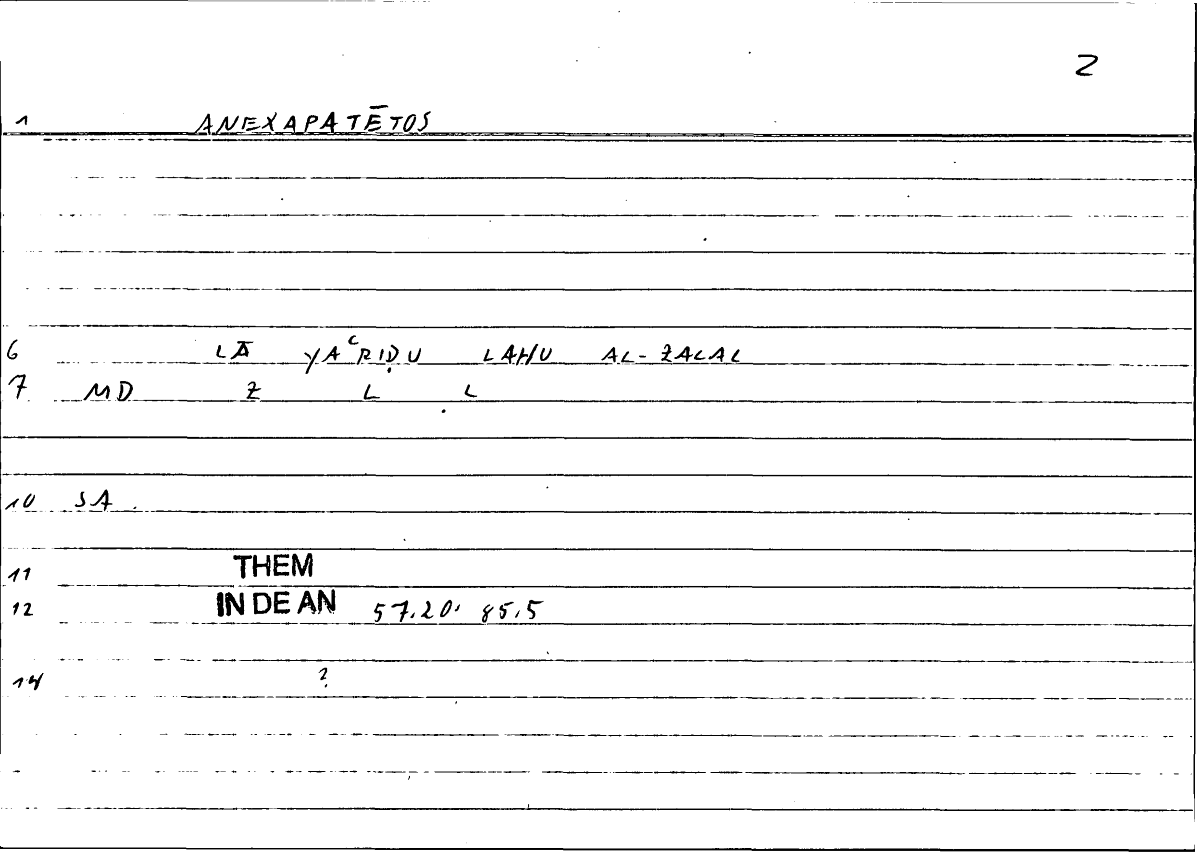 2
1 ANEXAPATĒTOS
6 LĀ YAʿRIḌU LAHU AL-ZALAL
7 MD Z L L
10 SA.
11 THEM
12 IN DE AN 57.20. 85.5
14 ?